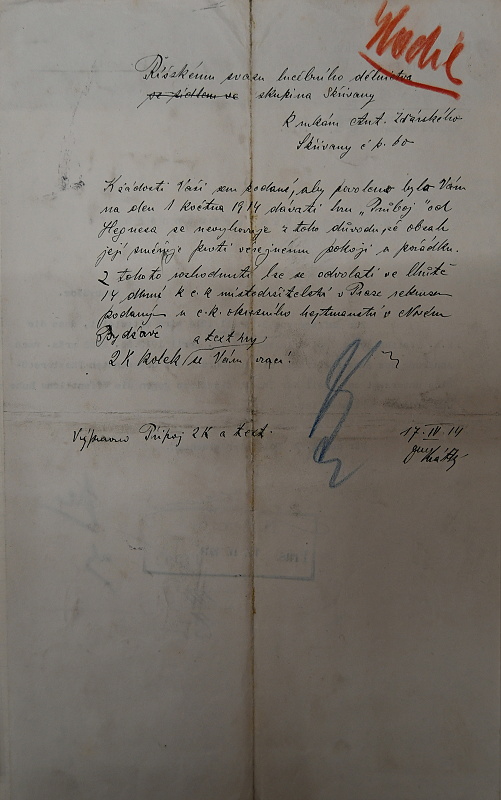 Říšskému svazu lučebního dělnictva
se sídlem ve skupina Skřivany
K rukám Ant. Žďárského
Skřivany č p. 60
K žádosti Vaší sem podané, aby povoleno bylo Vám
na den 1 května 1914 dávati hru „Průboj" od
Hegnesa se nevyhovuje z toho důvodu, že obsah
její směřuje proti veřejnému pokoji a pořádku.
Z tohoto rozhodnutí lze se odvolati ve lhůtě
14 denní k c. k. místodržitelství v Praze rekursem
podaným u c. k. okresního hejtmanství v Novém
Bydžově a text hry
2 K kolek se Vám vrací!
Vypraveno Připoj 2 K a text.
17. IV. 14